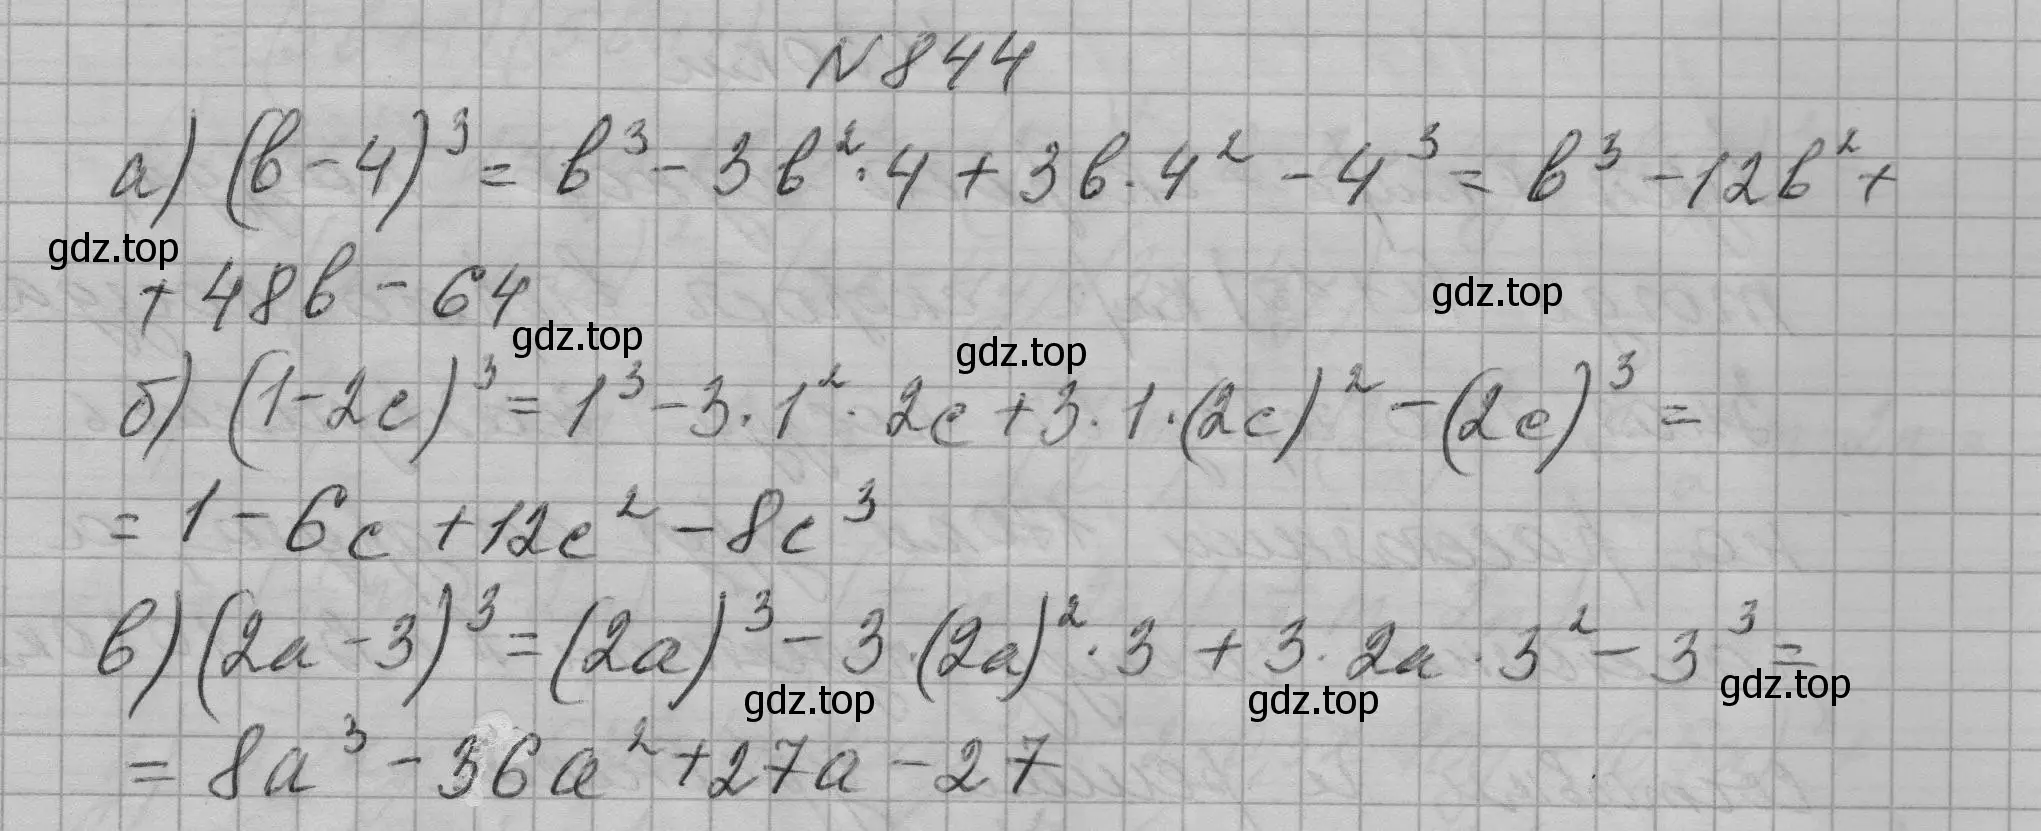 N844
а) (b-4)³ = b³ - 3b²·4 + 3b·4² - 4³ = b³ - 12b² +
gdz.top
+ 48b - 64
gdz.top
gdz.top
gdz.top
б) (1-2c)³ = 1³ - 3·1²·2c + 3·1·(2c)² - (2c)³ =
= 1 - 6c + 12c² - 8c³
в) (2a-3)³ = (2a)³ - 3·(2a)²·3 + 3·2a·3² - 3³ =
gdz.top
gdz.top
gdz.top
= 8a³ - 36a² + 27a - 27